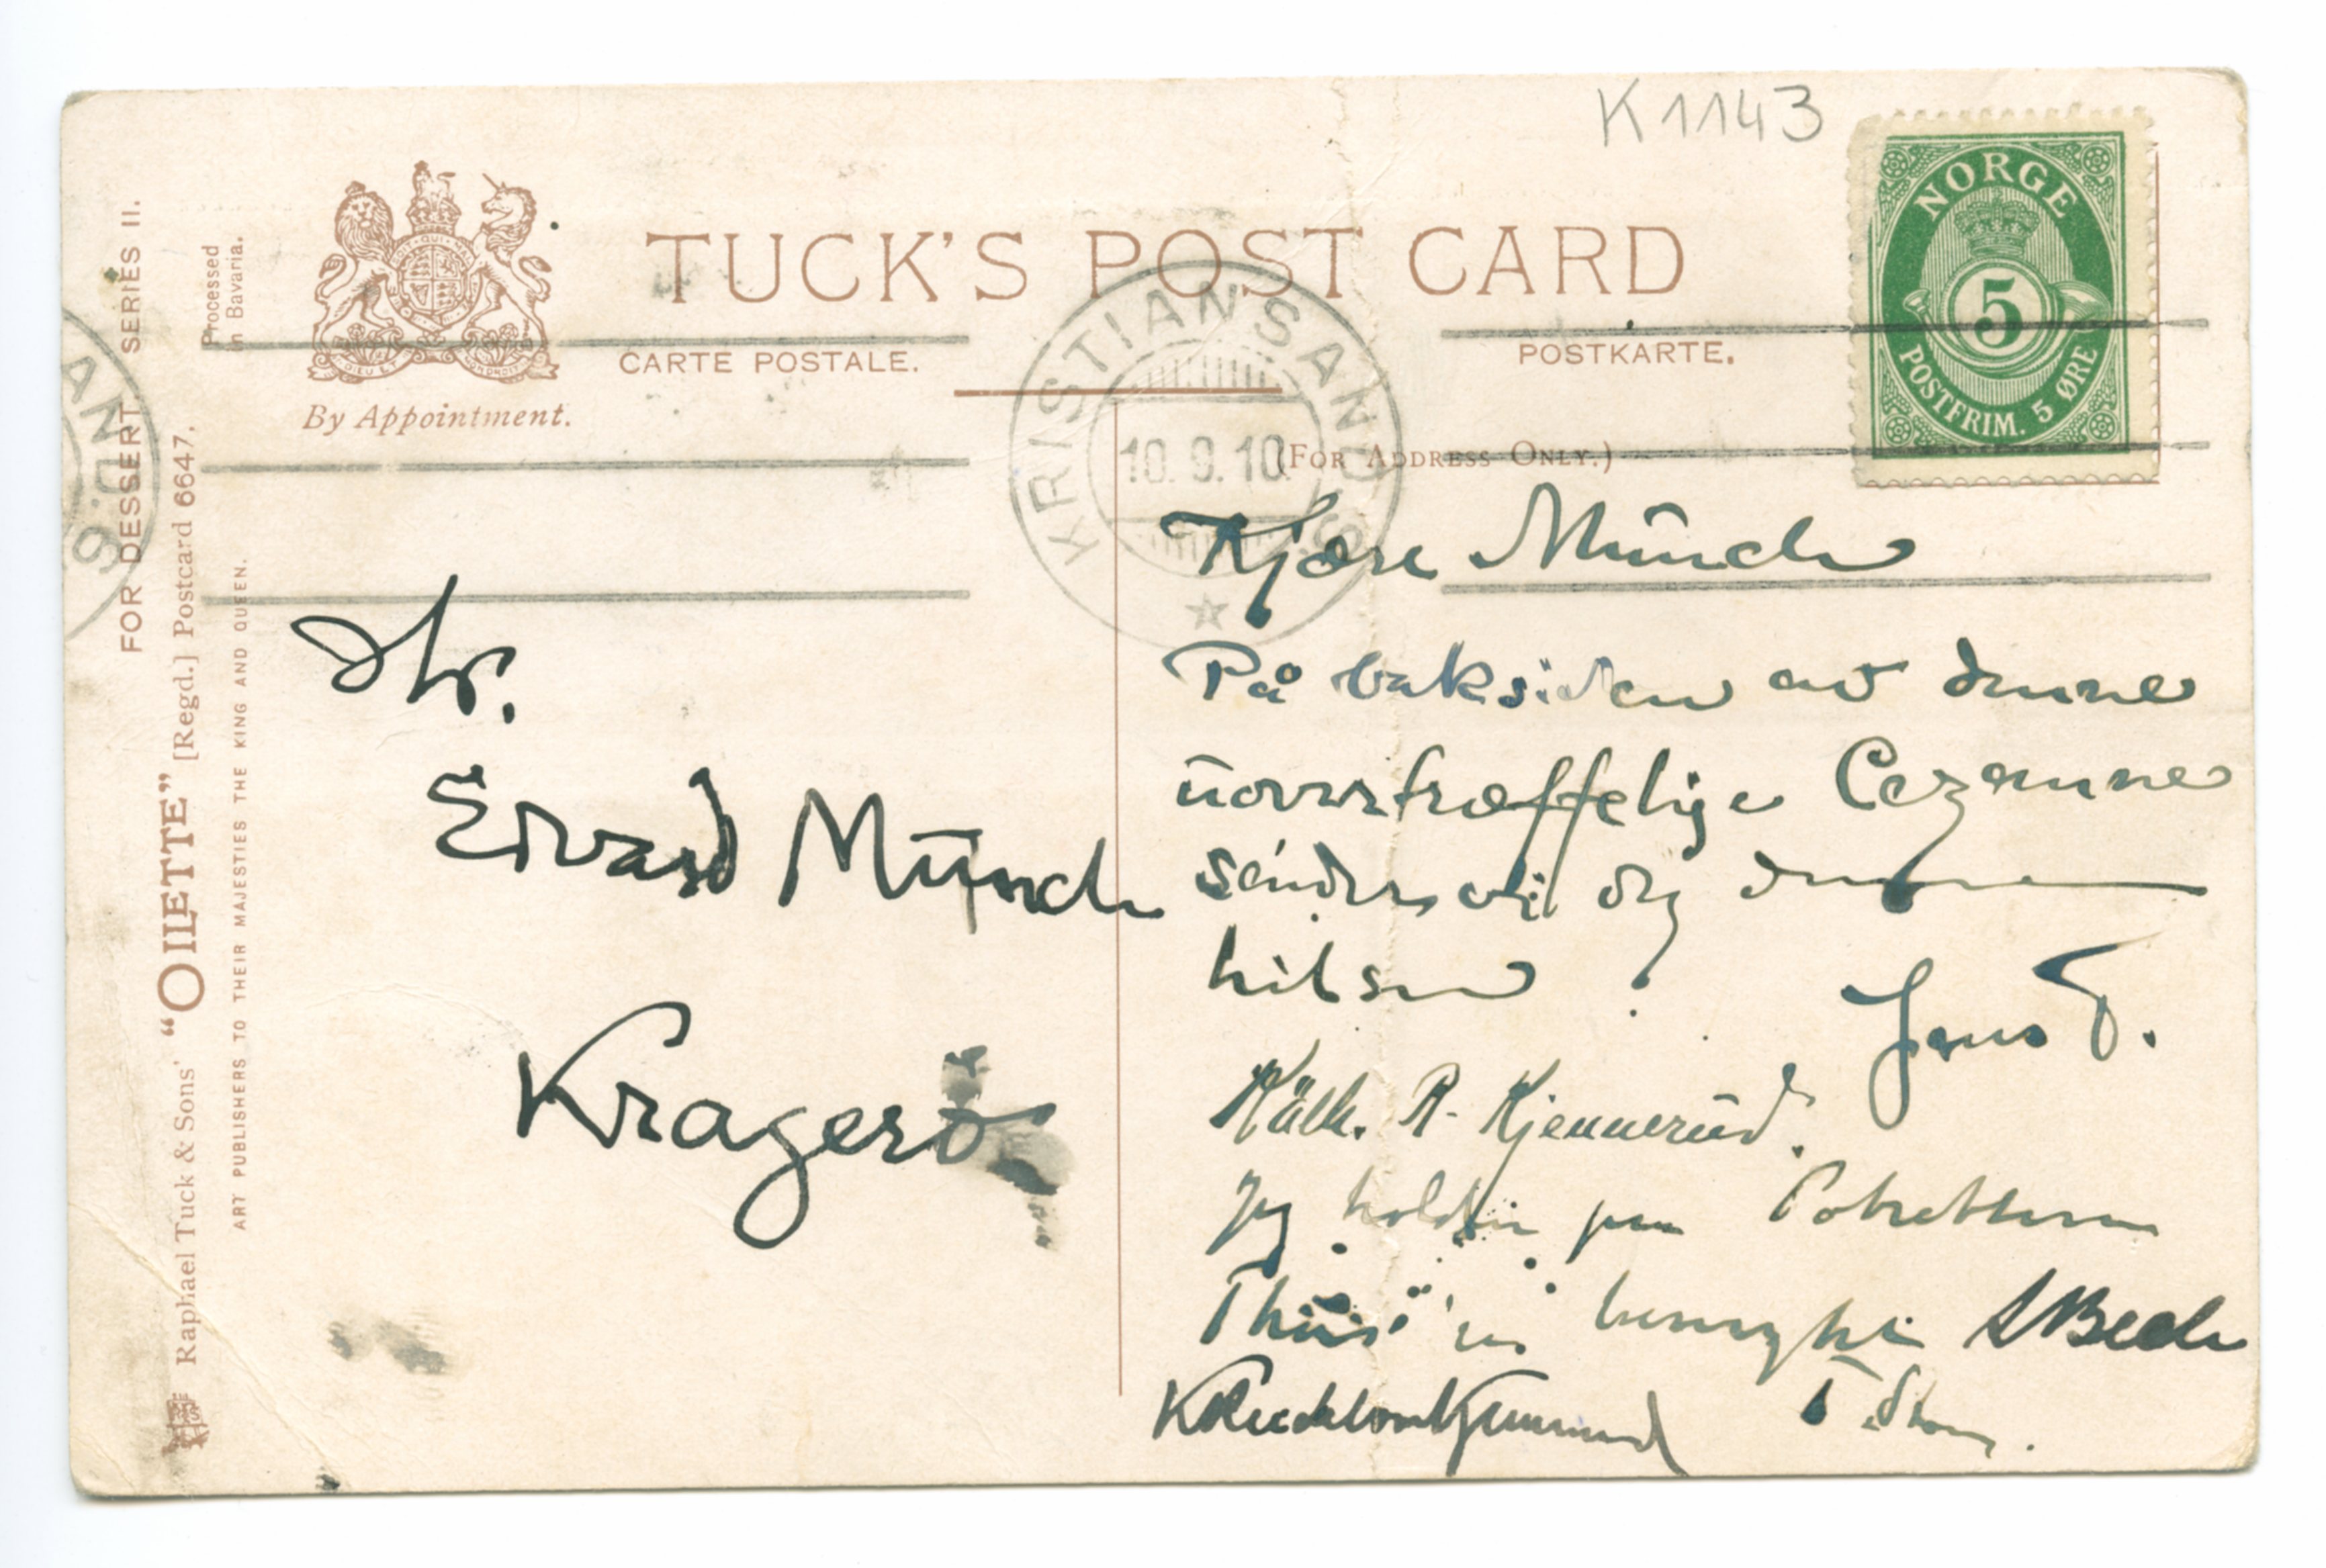 K1143
TUCK'S POST CARD
CARTE POSTALE.
POSTKARTE.
By Appointment.
(FOR ADDRESS ONLY.)
NORGE
5
POSTFRIM. 5 ØRE
KRISTIANSAND.S
10.9.10
AND.S
FOR DESSERT SERIES II.
Processed
in Bavaria.
Raphael Tuck & Sons' "OILETTE" [Regd.] Postcard 6647.
ART PUBLISHERS TO THEIR MAJESTIES THE KING AND QUEEN.
Hr.
Edvard Munch
Kragerø
Kjære Munch
På baksiden av denne
uovertræffelige Cezanne
sender vi dig denne
hilsen
Jens T.
Käth. R. Kjennerud.
Jeg holder paa
Thiis
Bech